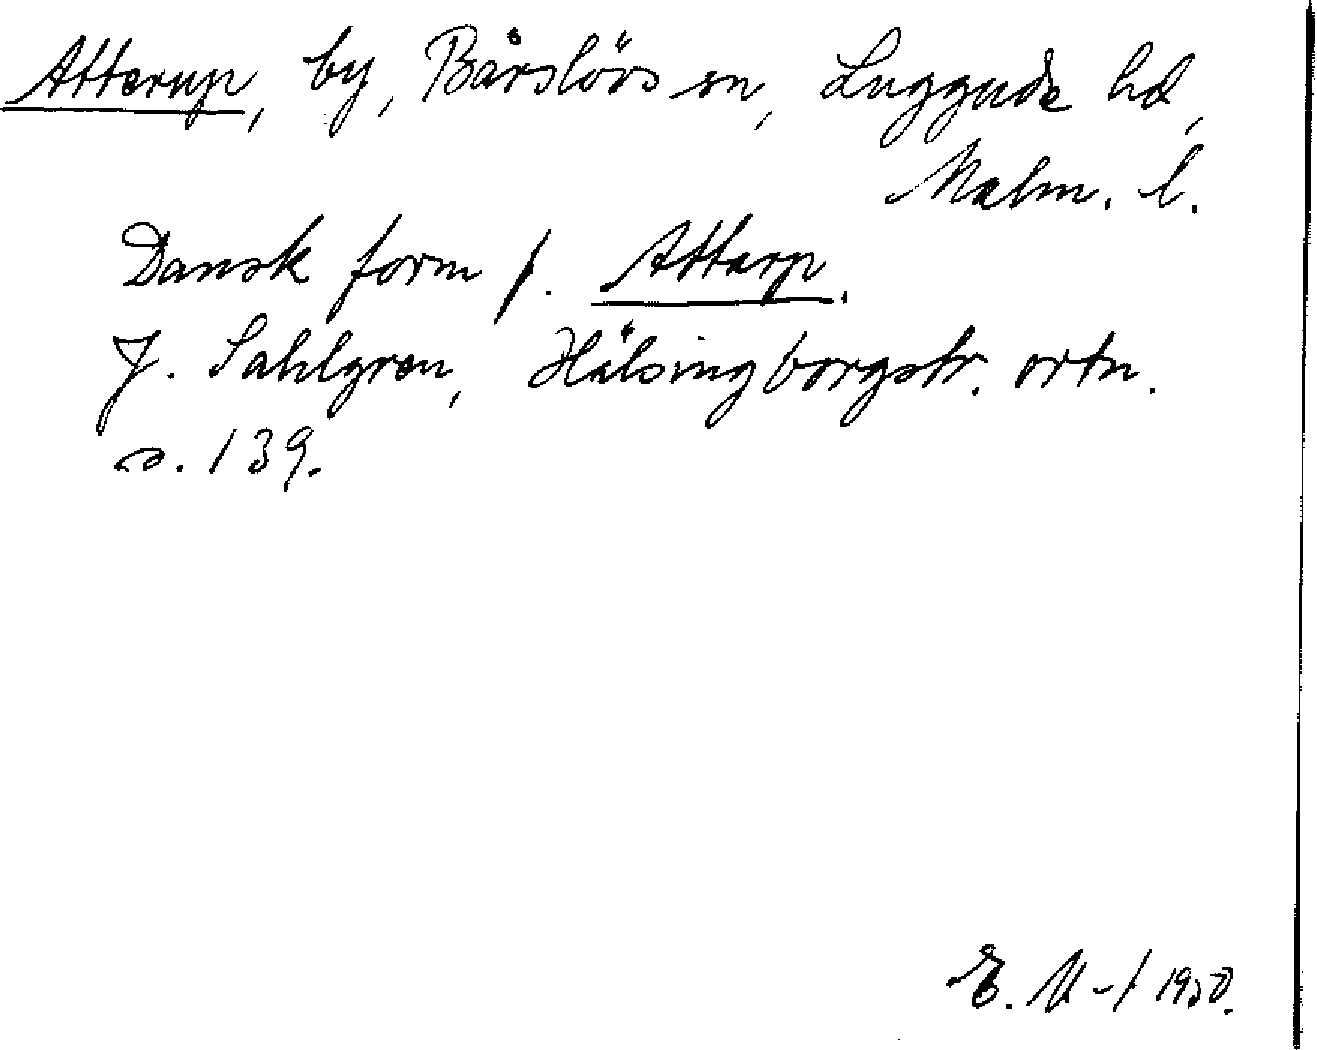 Atterup, by, Bårslövs sn, Luggude hd,
Malm. l.
Dansk form f. Attarp.
J. Sahlgren, Hälsingborgstr. ortn.
s. 139.
E. 1950.